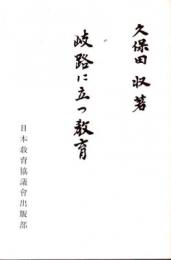 久保田 収著
岐路に立つ教育
日本教育協議會出版部